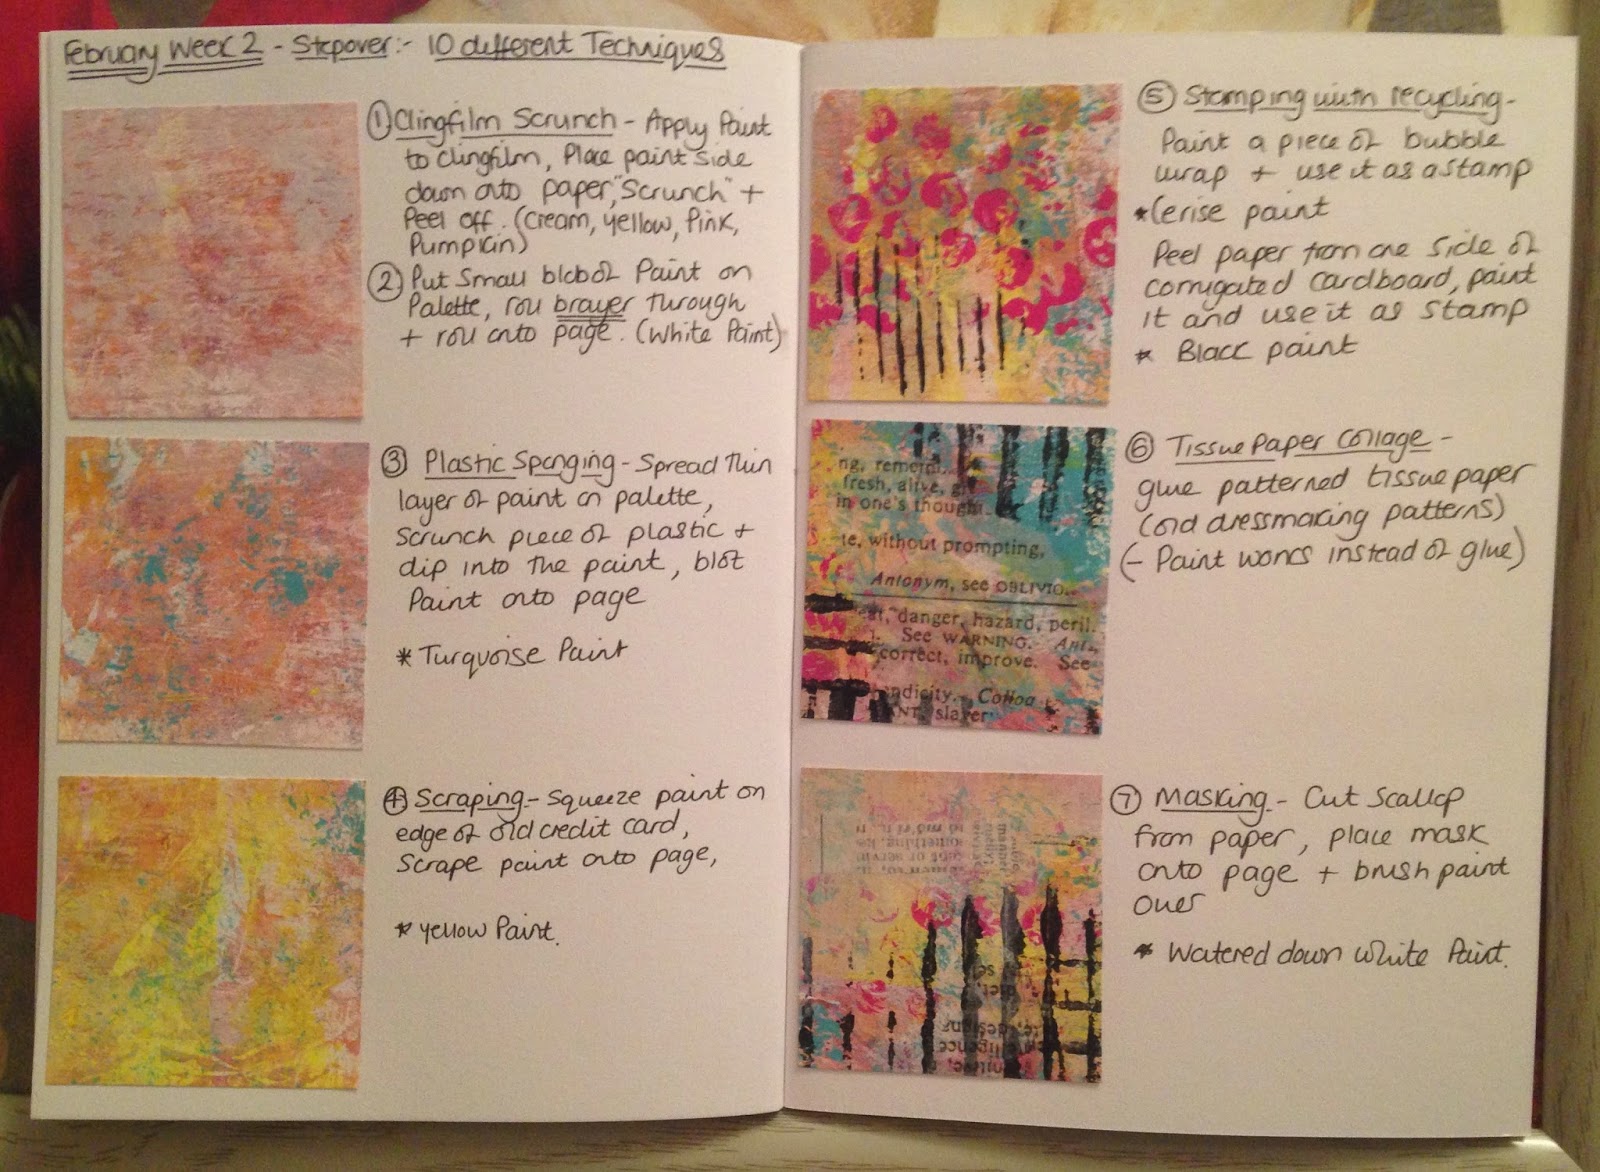 February Week 2 - Stepover:- 10 different Techniques
① Clingfilm Scrunch - Apply Paint
to clingfilm, Place paint side
down onto paper, "Scrunch" +
Peel off. (Cream, yellow, Pink,
Pumpkin)
② Put Small blob of Paint on
Palette, roll brayer through
+ roll onto page. (White Paint)
③ Plastic Sponging - Spread thin
layer of paint on palette,
scrunch piece of plastic +
dip into the paint, blot
Paint onto page
* Turquoise Paint
④ Scraping - squeeze paint on
edge of old credit card,
Scrape paint onto page,
* Yellow Paint.
⑤ Stamping with recycling -
Paint a piece of bubble
wrap + use it as a stamp
* Cerise paint
Peel paper from one side of
corrugated cardboard, paint
it and use it as stamp
* Black paint
ng, rememb
fresh, alive,
in one's thought.
te, without prompting,
Antonym, see OBLIVIO
danger, hazard, peril.
See WARNING. Ant.,
correct, improve. See
ndicity.
NT, slaver
⑥ Tissue Paper Collage -
glue patterned tissue paper
(old dressmaking patterns)
(- Paint works instead of glue)
⑦ Masking - Cut Scallop
from paper, place mask
onto page + brush paint
over
* Watered down white Paint.